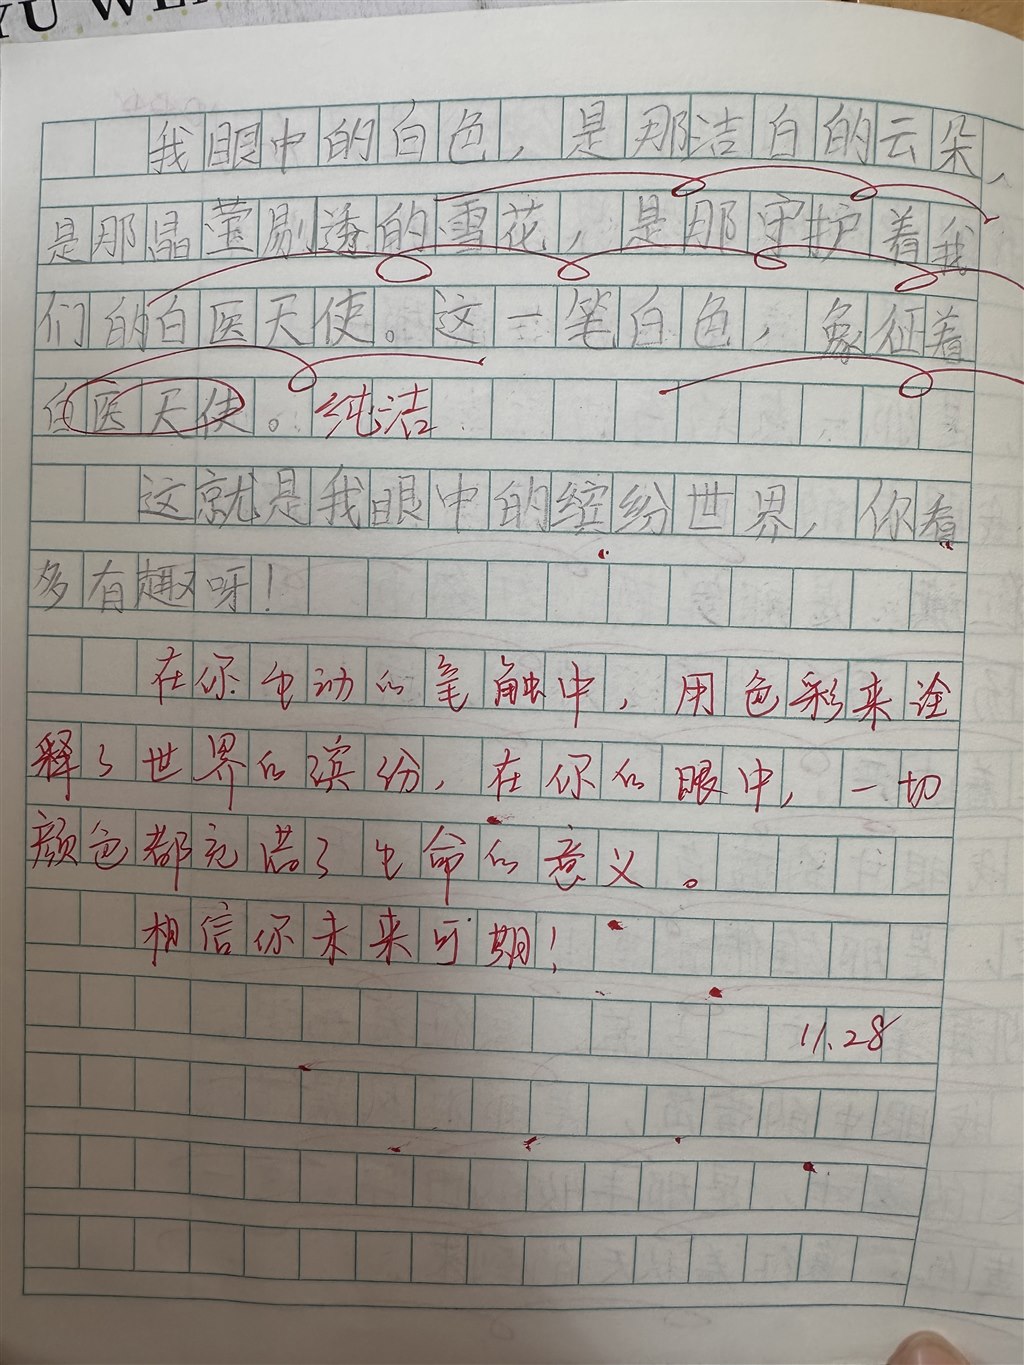 YU WE
我眼中的白色，是那洁白的云朵，
是那晶莹剔透的雪花，是那守护着我
们的白医天使。这一笔白色，象征着
白医天使。纯洁
这就是我眼中的缤纷世界，你看
多有趣呀！
在你生动的笔触中，用色彩来诠
释了世界的缤纷，在你的眼中，一切
颜色都充满了生命的意义。
相信你未来可期！
11.28